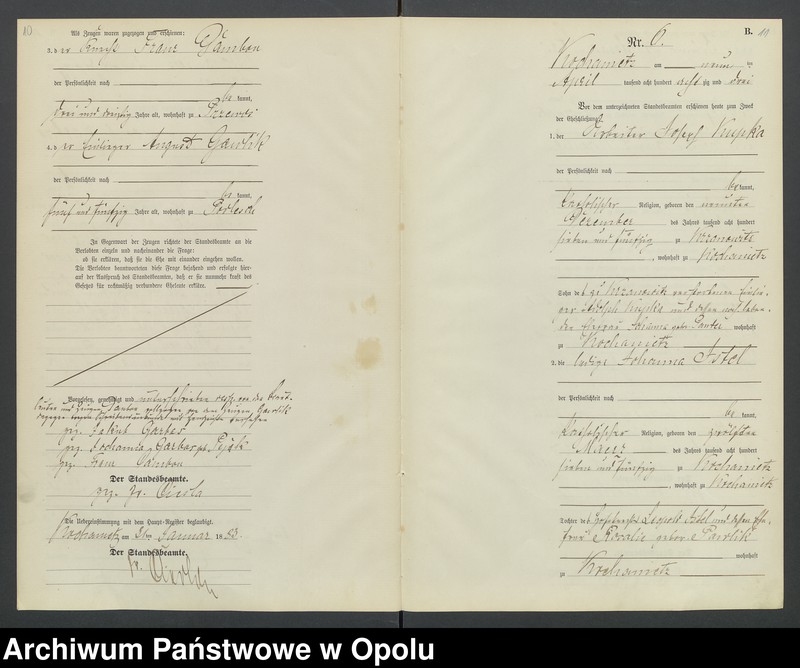 10
Als Zeugen waren zugezogen und erschienen:
3. der Franz Dambon
der Persönlichkeit nach
be kannt,
drei und dreißig Jahre alt, wohnhaft zu
4. der Einlieger August Gawlik
der Persönlichkeit nach
be kannt,
fünf und fünfzig Jahre alt, wohnhaft zu
In Gegenwart der Zeugen richtete der Standesbeamte an die
Verlobten einzeln und nacheinander die Frage:
ob sie erklären, daß sie die Ehe mit einander eingehen wollen.
Die Verlobten beantworteten diese Frage bejahend und erfolgte hier-
auf der Ausspruch des Standesbeamten, daß er sie nunmehr kraft des
Gesetzes für rechtmäßig verbundene Eheleute erkläre.
Vorgelesen, genehmigt und unterschrieben von den
Gawlik
gez. Jakob Garber
gez. Garber geb.
gez. Franz Dambon
Der Standesbeamte.
gez. Fr.
Die Uebereinstimmung mit dem Haupt-Register beglaubigt.
Kochanietz am Januar 1883.
Der Standesbeamte.
Fr.
B.
Nr. 6.
Kochanietz am neun ten
April tausend acht hundert achtzig und drei
Vor dem unterzeichneten Standesbeamten erschienen heute zum Zweck
der Eheschließung:
1. der Arbeiter Josef Kupka
der Persönlichkeit nach
be kannt,
katholischer Religion, geboren den neunten
Dezember des Jahres tausend acht hundert
sieben und fünfzig zu
, wohnhaft zu Kochanietz
Sohn des zu verstorbenen Einlie-
gers Adolph Kupka und dessen noch leben-
den Ehefrau Johanna geb. wohnhaft
zu Kochanietz
2. die ledige Johanna Istel
der Persönlichkeit nach
be kannt,
katholischer Religion, geboren den zwölften
Maerz des Jahres tausend acht hundert
sieben und fünfzig zu Kochanietz
, wohnhaft zu Kochanietz
Tochter des Leopold Istel und dessen Ehe-
frau Rosalie geborne Pawlik
wohnhaft
zu Kochanietz
Archiwum Państwowe w Opolu